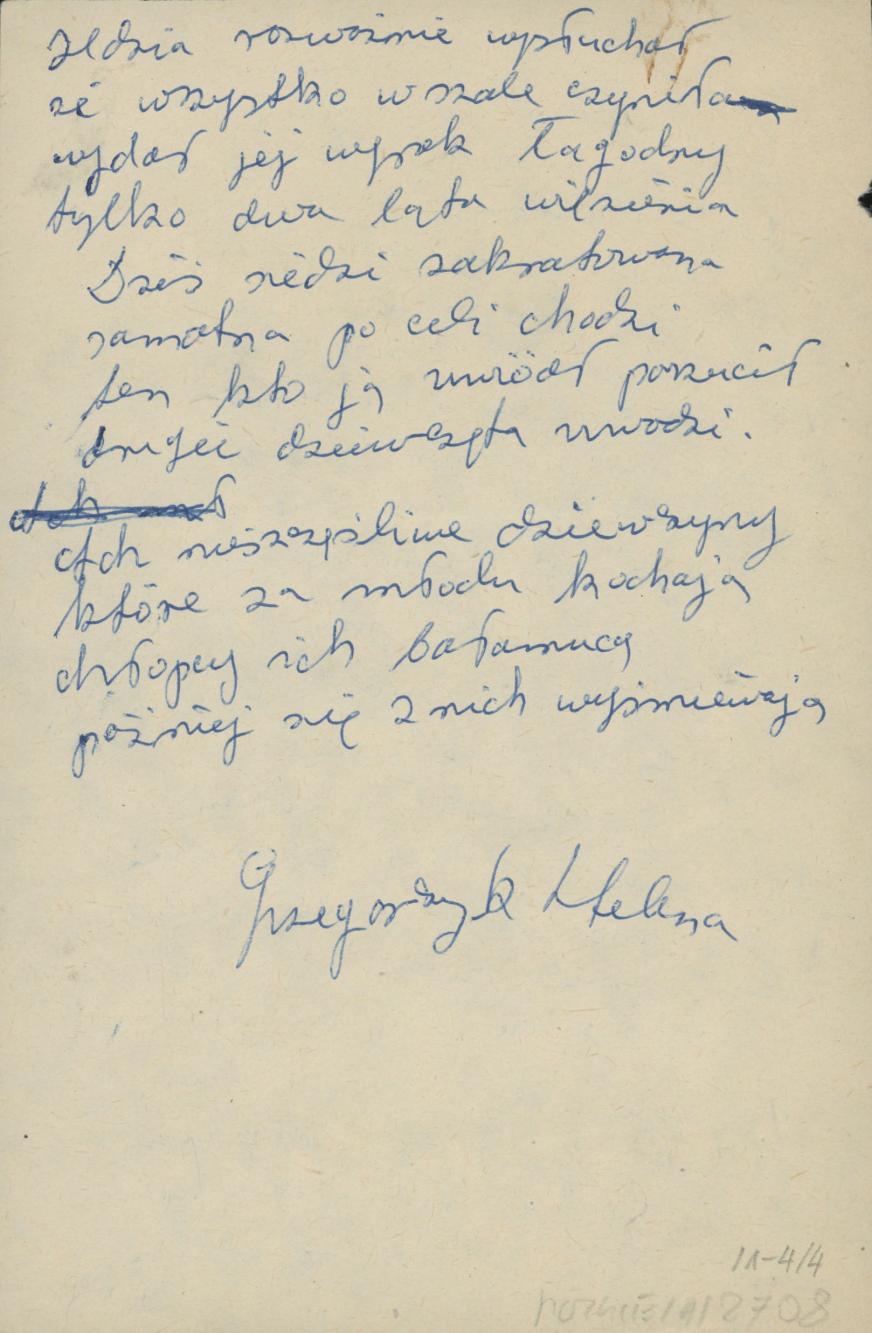 Sędzia rozważnie wysłuchał
że wszystko w szale czyniła
wydał jej wyrok łagodny
tylko dwa lata więzienia
Dziś siedzi zakratowana
samotna po celi chodzi
ten kto ją uwiódł porzucił
drugie dziewczęta uwodzi.
Ach
Ach nieszczęśliwe dziewczyny
które za młodu kochają
chłopcy ich bałamucą
później się z nich wyśmiewają
Grzegorczyk Helena
11-4/4
2708